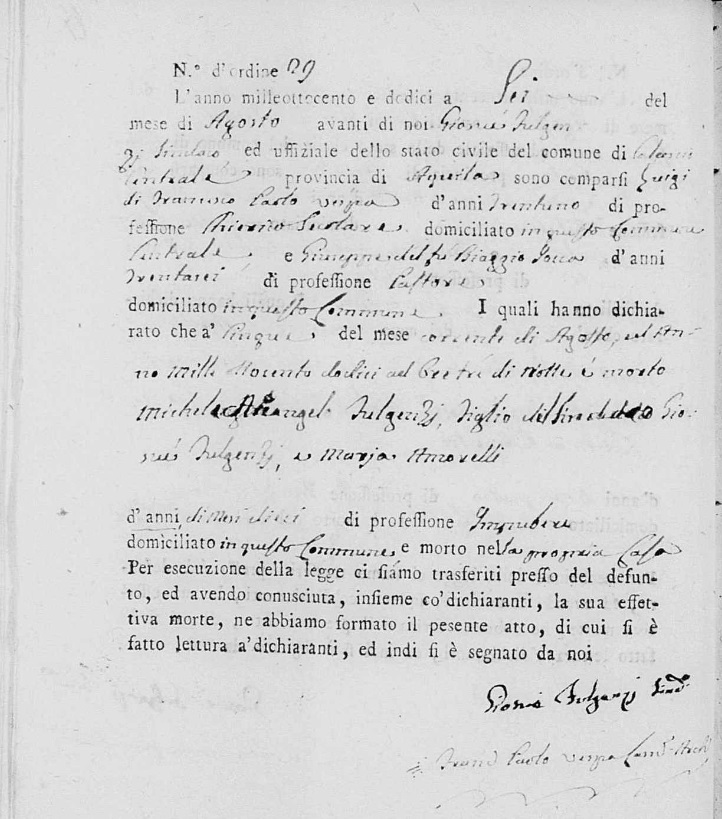 N.º d'ordine 29
L'anno milleottocento e dodici a Sei del
mese di Agosto avanti di noi Giosuè Fulgen
zj Sindaco ed uffiziale dello stato civile del comune di
Centrale provincia di Aquila sono comparsi Luigi
di Francesco Paolo Vespa d'anni Trentuno di pro-
fessione Secolare domiciliato in questo Commune
Centrale e Giuseppe del fù Biaggio d'anni
Trentasei di professione Pastore
domiciliato in questo Commune. I quali hanno dichia-
rato che a' Cinque del mese corrente di Agosto, ed An-
no Mille Ottocento dodici ad Ore tré di Notte é morto
Michelearcangelo Fulgenzj, Figlio del Gio-
sué Fulgenzj, e Maria Amorelli
d'anni, di Mesi dieci di professione Impubere
domiciliato in questo Commune e morto nella propria Casa
Per esecuzione della legge ci siámo trasferiti presso del defun-
to, ed avendo conusciuta, insieme co'dichiaranti, la sua effet-
tiva morte, ne abbiamo formato il pesente atto, di cui si è
fatto lettura a'dichiaranti, ed indi si è segnato da noi
Giosuè Fulgenzj Sind.
Franc. Paolo Vespa